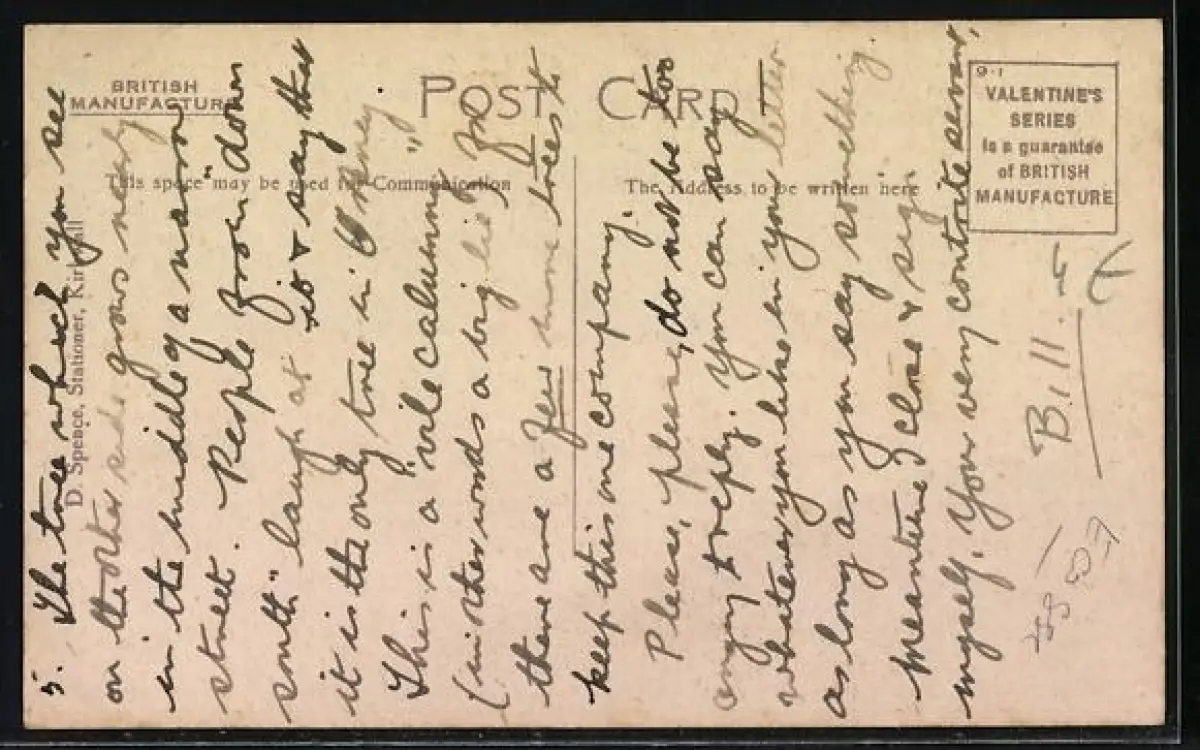 BRITISH
MANUFACTURE
POST CARD
This space may be used for Communication
The Address to be written here
D. Spence, Stationer, Kirkwall
9·1
VALENTINE'S
SERIES
is a guarantee
of BRITISH
MANUFACTURE
5. The tree which you see
on the other side grows nearly
in the middle of a narrow
street. People from "down
south" laugh at it & say that
it is the only tree in Orkney.
This is a "vile calumny"
(in other words a big lie) for
there are a few more trees to
keep this one company.
Please, please, do not be too
angry to reply. You can say
whatever you like in your letter
as long as you say something.
Meantime I close & sign
myself, Your very contrite servant,
Bill